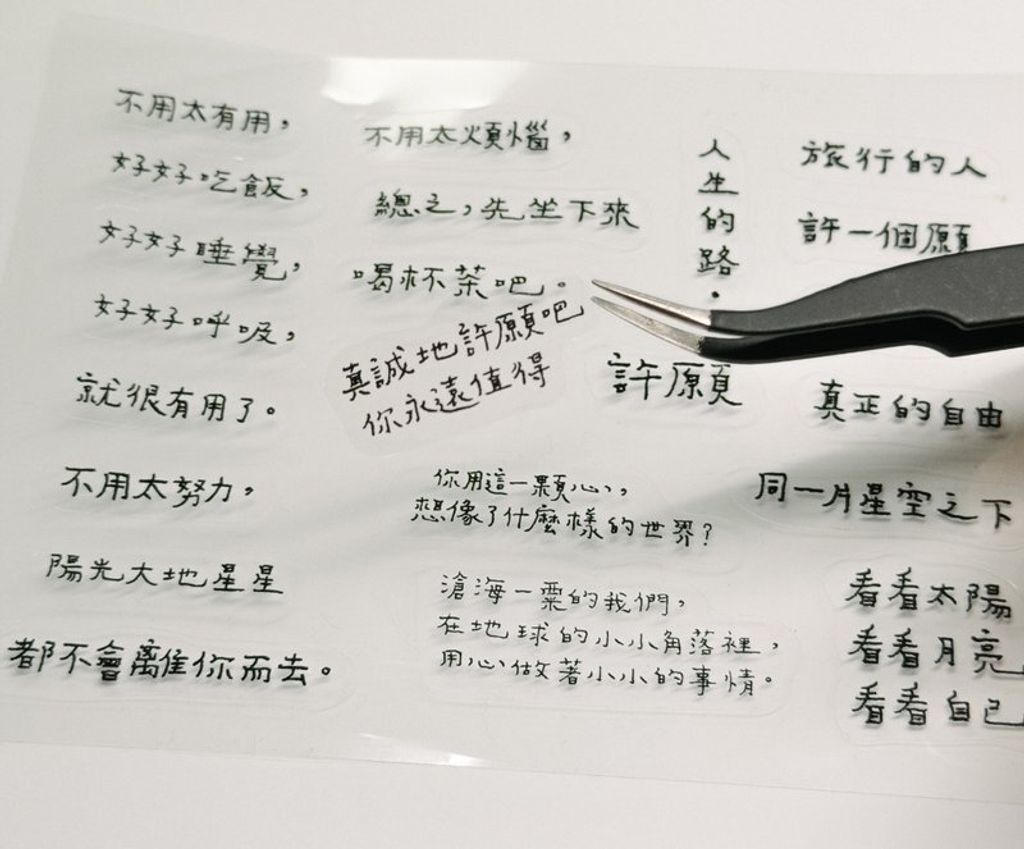 不用太有用，
好好吃飯，
好好睡覺，
好好呼吸，
就很有用了。
不用太努力，
陽光大地星星
都不會離你而去。
不用太煩惱，
總之，先坐下來
喝杯茶吧。
真誠地許願吧
你永遠值得
你用這一顆心，
想像了什麼樣的世界？
滄海一粟的我們，
在地球的小小角落裡，
用心做著小小的事情。
人生的路．
許願
旅行的人
許一個願
真正的自由
同一片星空之下
看看太陽
看看月亮
看看自己